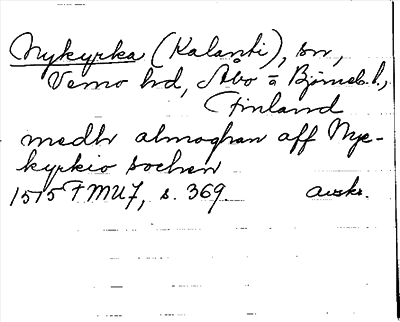 Nykyrka (Kalanti), sn,
Vemo hd, Åbo o Björneb. l.,
Finland
medh almoghan aff Nye-
kyrkio sochen
1515 FMU 7, s. 369. avskr.